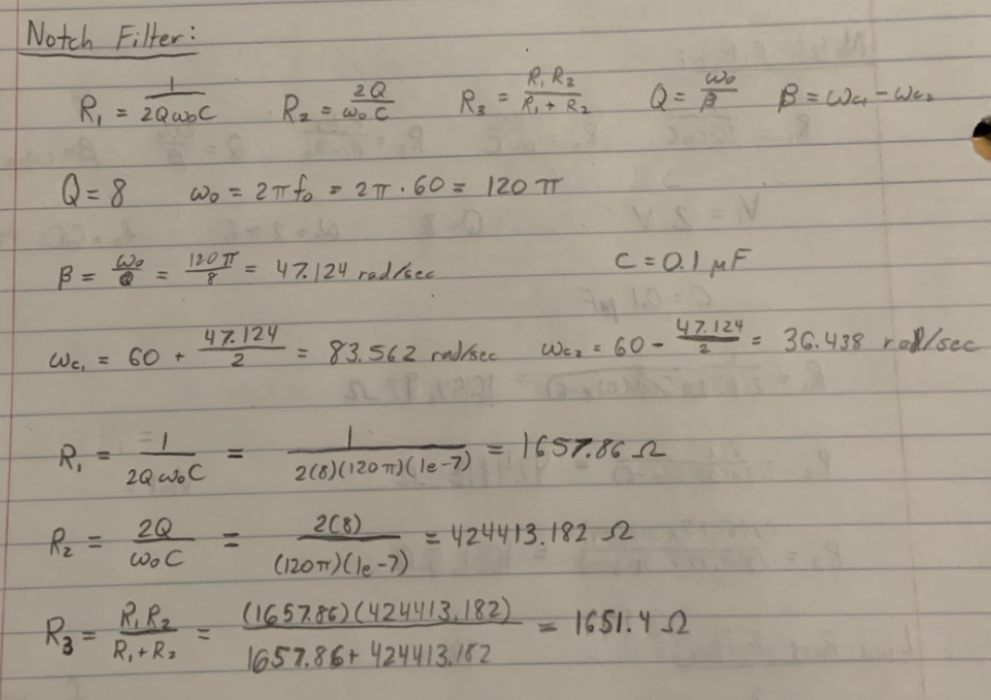 Notch Filter:
R₁ = 1/(2Qω₀C) R₂ = 2Q/(ω₀C) R₃ = R₁R₂/(R₁+R₂) Q = ω₀/β β = ωc₁ - ωc₂
Q = 8 ω₀ = 2πf₀ = 2π · 60 = 120π
β = ω₀/Q = 120π/8 = 47.124 rad/sec C = 0.1 μF
ωc₁ = 60 + 47.124/2 = 83.562 rad/sec ωc₂ = 60 - 47.124/2 = 36.438 rad/sec
R₁ = 1/(2Qω₀C) = 1/(2(8)(120π)(1e-7)) = 1657.86 Ω
R₂ = 2Q/(ω₀C) = 2(8)/((120π)(1e-7)) = 424413.182 Ω
R₃ = R₁R₂/(R₁+R₂) = (1657.86)(424413.182)/(1657.86+424413.182) = 1651.4 Ω